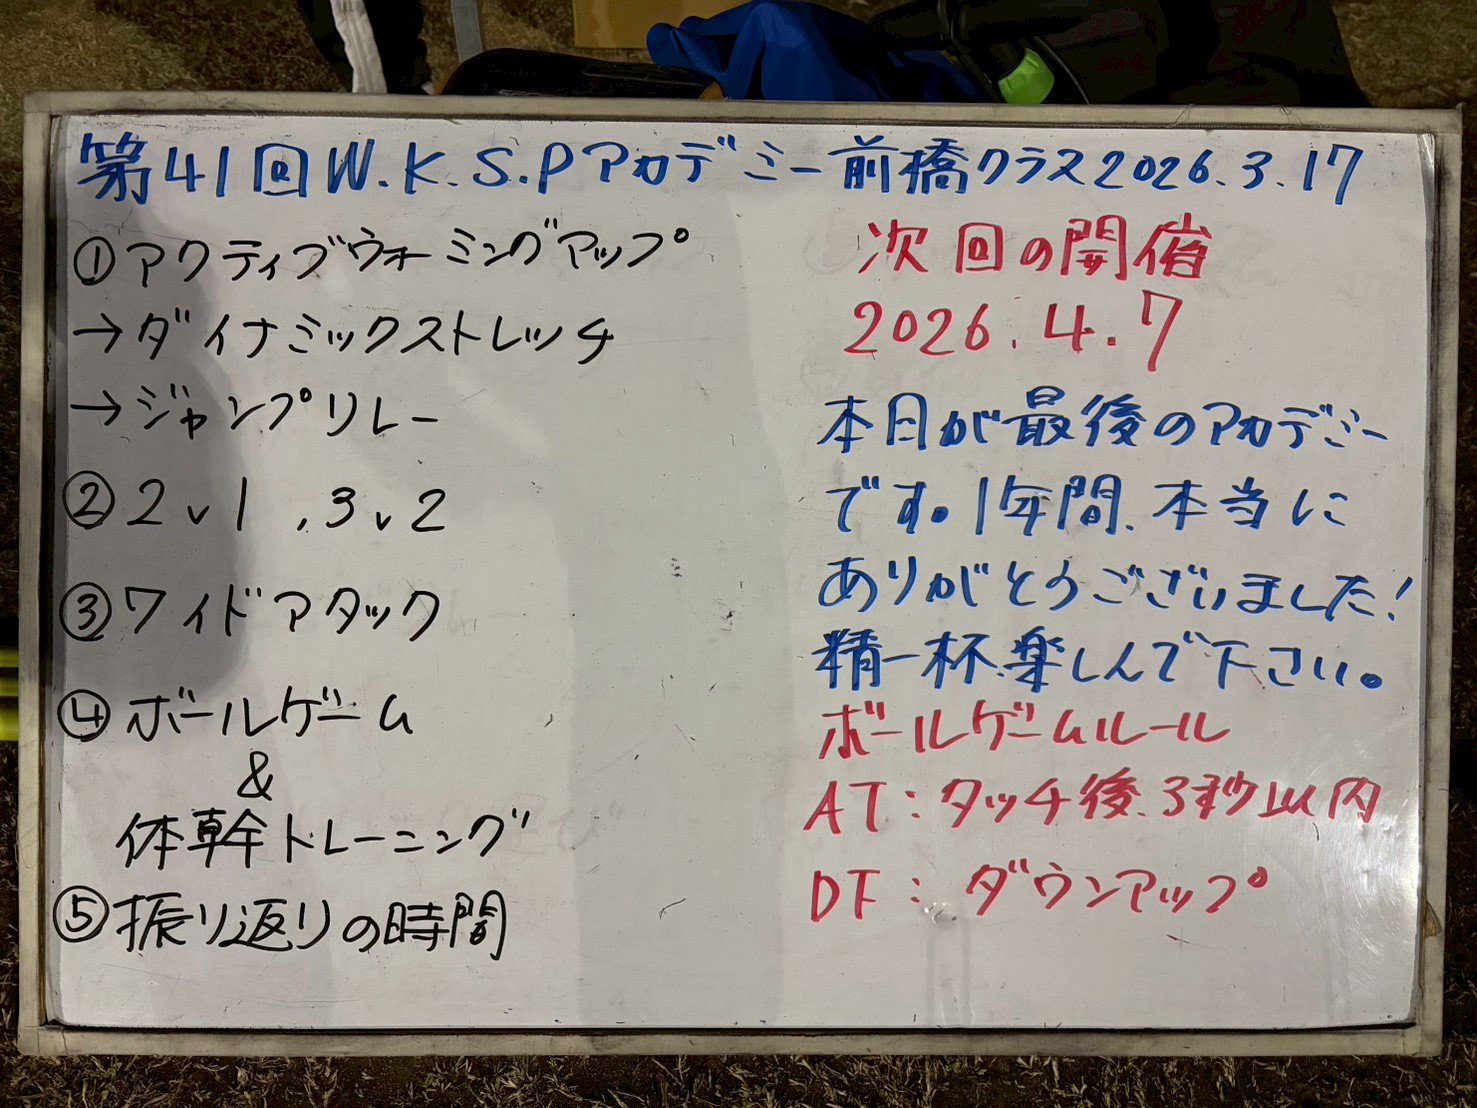 第41回W.K.S.Pアカデミー前橋クラス2026.3.17
①アクティブウォーミングアップ
→ダイナミックストレッチ
→ジャンプリレー
②2v1,3v2
③ワイドアタック
④ボールゲーム
&
体幹トレーニング
⑤振り返りの時間
次回の開催
2026.4.7
本日が最後のアカデミー
です。1年間、本当に
ありがとうございました!
精一杯、楽しんで下さい。
ボールゲームルール
AT:タッチ後、3秒以内
DF:ダウンアップ